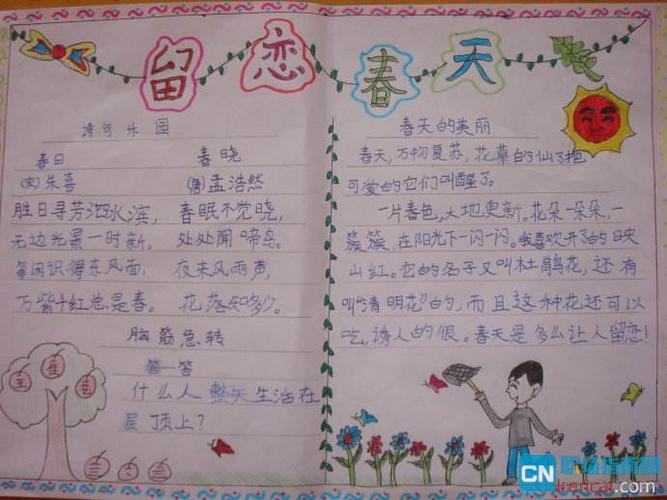 留恋春天
诗句乐园
春日
(宋)朱喜
胜日寻芳泗水滨,
无边光景一时新,
等闲识得东风面,
万紫千红总是春。
春晓
(唐)孟浩然
春眠不觉晓,
处处闻啼鸟。
夜来风雨声,
花落知多少。
脑筋急转
答
什么人整天生活在
屋顶上?
春天的美丽
春天,万物复苏,花草的仙子把
可爱的它们叫醒了。
一片春色,大地更新。花朵一朵朵,一
簇簇,在阳光下一闪一闪。我喜欢开了的日映
山红。它的名子又叫杜鹃花,还有
叫“清明花”的,而且这种花还可以
吃,诱人的很。春天是多么让人留恋!
CN
职场指南网